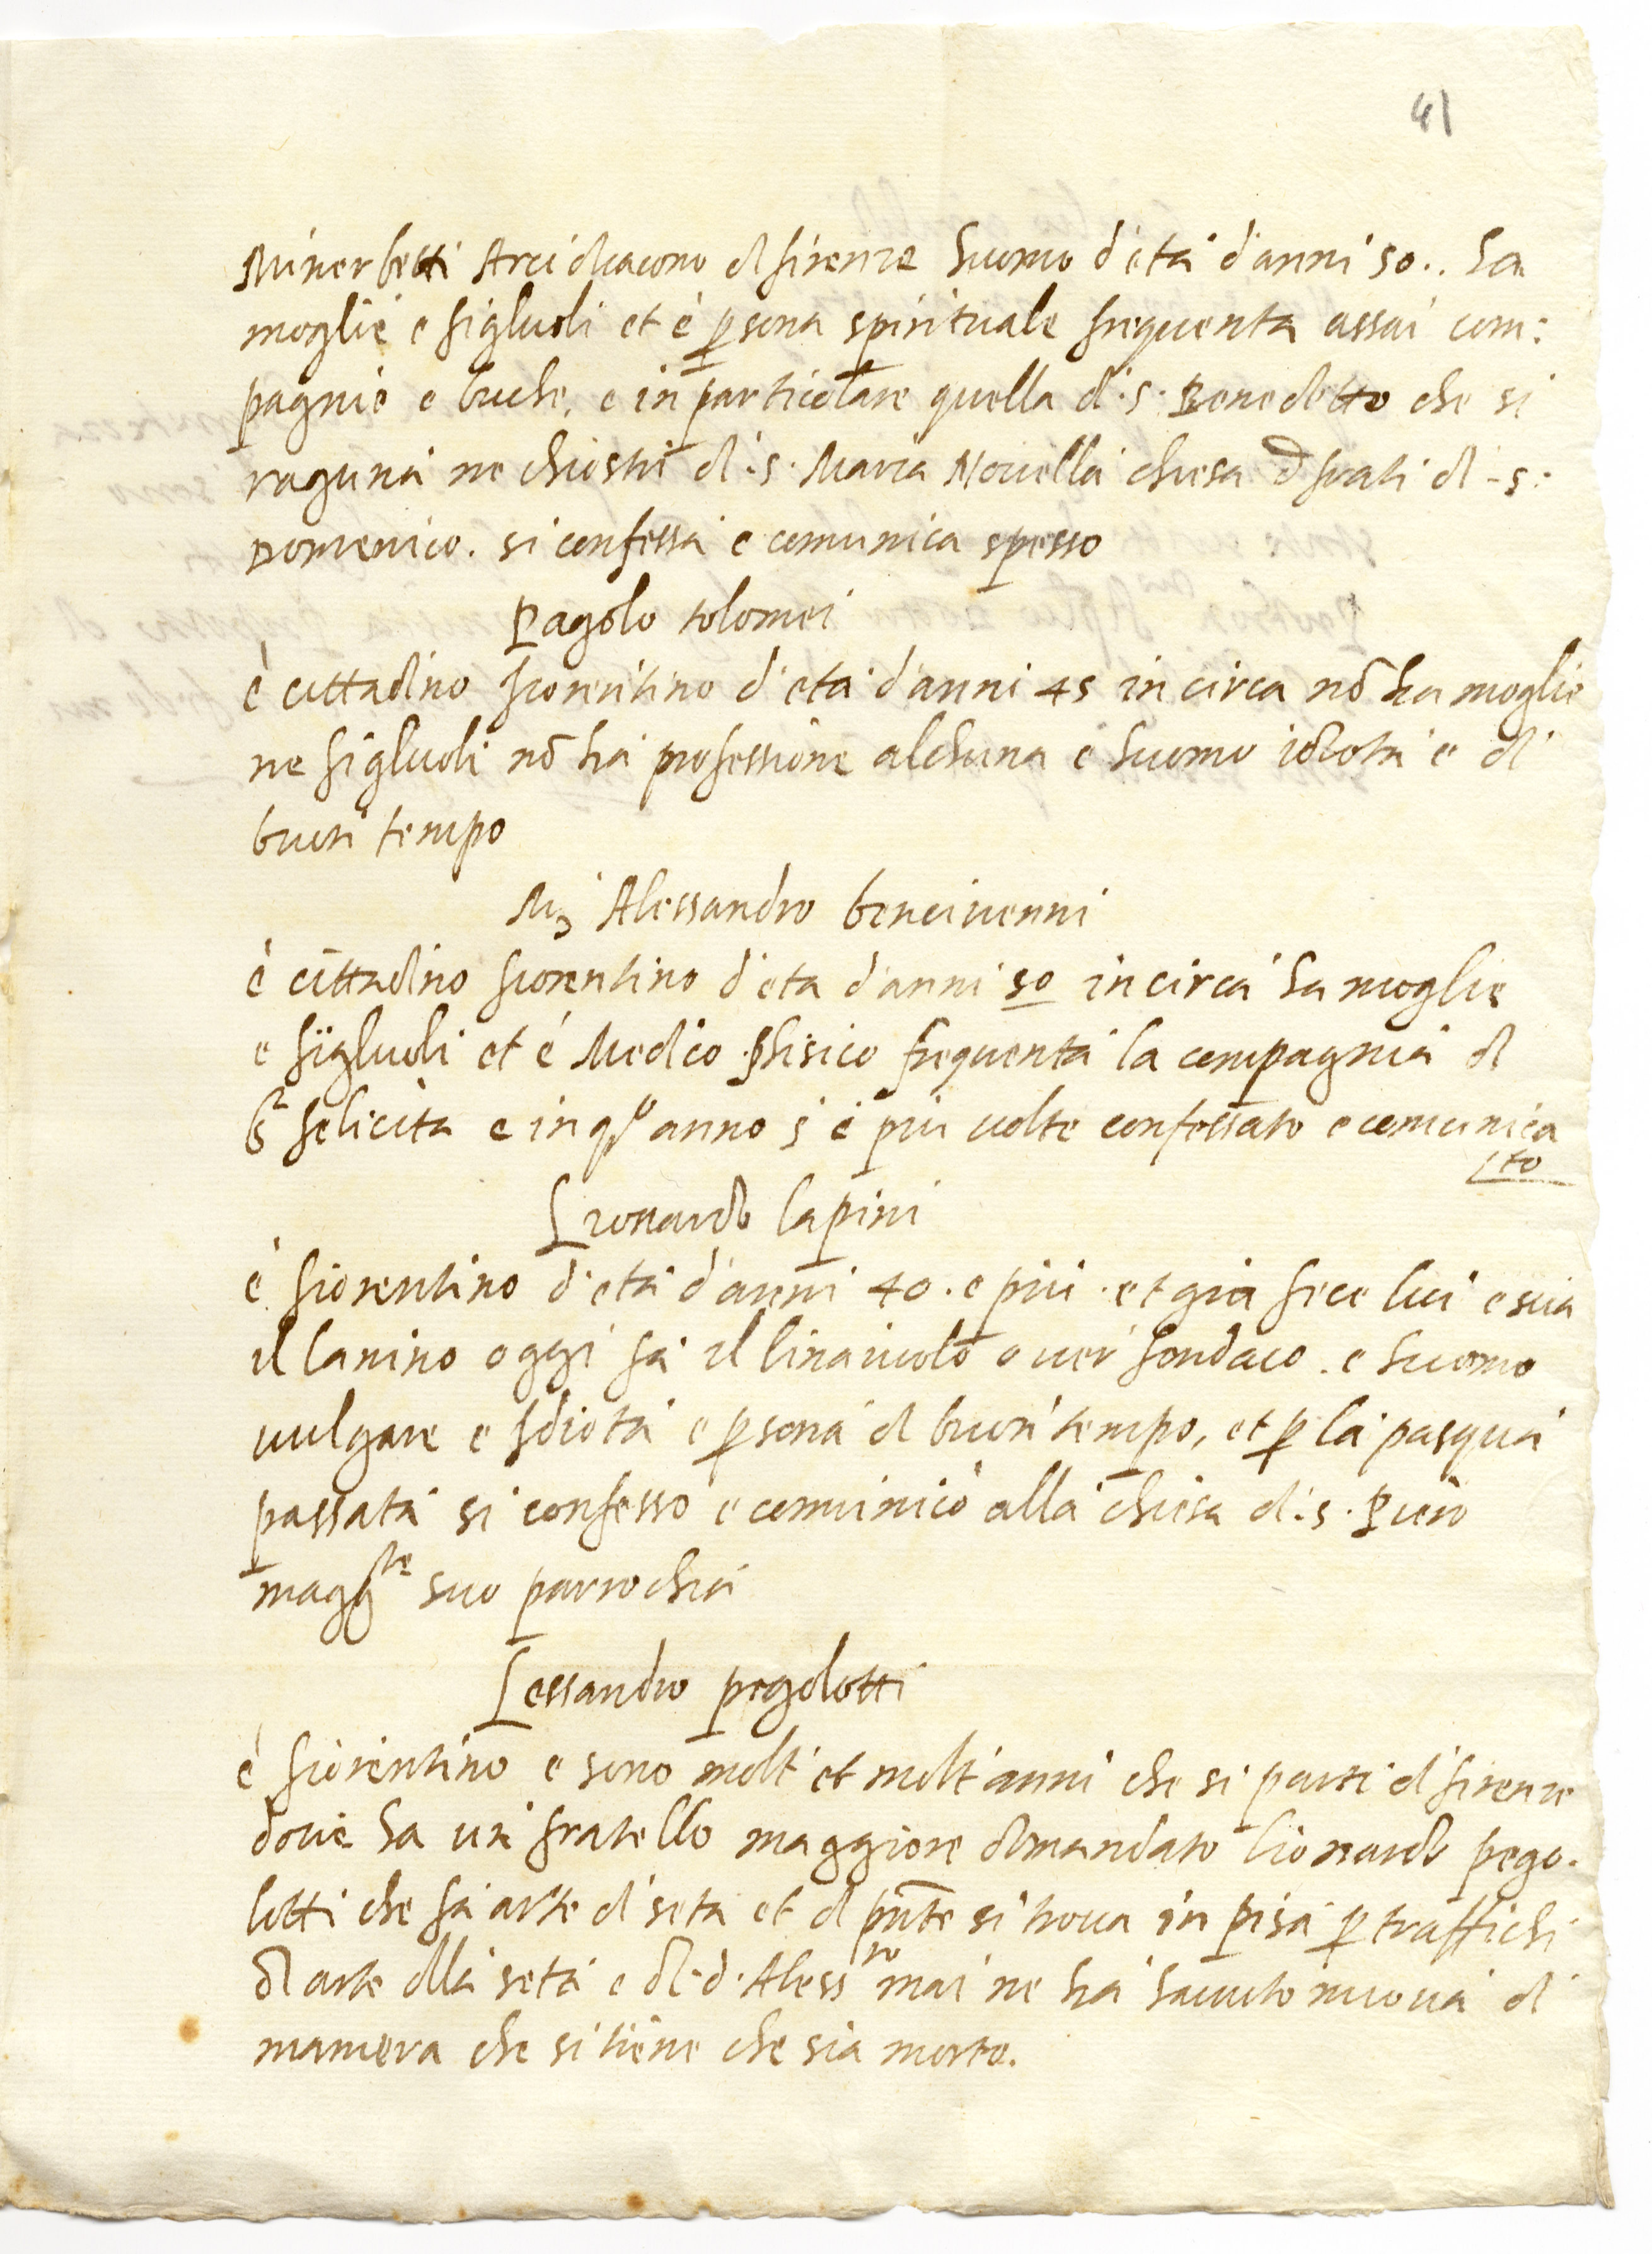 41
Minerbetti Arcidiacono di firenze huomo d'età d'anni 50.. ha
moglie e figluoli et è psona spirituale frequenta assai com:
pagnie e buche, e in particolare quella di .s. Benedetto che si
raguna ne chiostri di .s. Maria Novella chiesa de frati di .s.
Domenico. si confessa e comunica spesso
Pagolo tolomei
è cittadino fiorentino d'età d'anni 45 in circa nō ha moglie
ne figluoli nō ha professione alchuna è huomo idiota e di
buon tempo
Mʒ Alessandro bencivenni
è cittadino fiorentino d'età d'anni 50 in circa ha moglie
e figluoli et è Medico phisico frequenta la compagnia di
felicita e in qsto anno s'è più volte confessato e comunica
to
Lionardo lapini
è fiorentino d'età d'anni 40. e più. et già fece lui e suoi
il lanino oggi fa il linaiuolo o ver fondaco. e huomo
vulgare e idiota e psona di buon tempo, et p la pasqua
passata si confessò e comunicò alla chiesa di .s. Piero
maggre suo parrochia
Lessandro pegolotti
è fiorentino e sono molti et molt'anni che si partì di firenze
dove ha un fratello maggiore domandato lionardo pego.
lotti che fa arte di seta et di pnte si trova in pisa p traffichi
dl arte dlla seta e dl d. Alessro mai ne ha havuto nuova di
maniera che si tiene che sia morto.